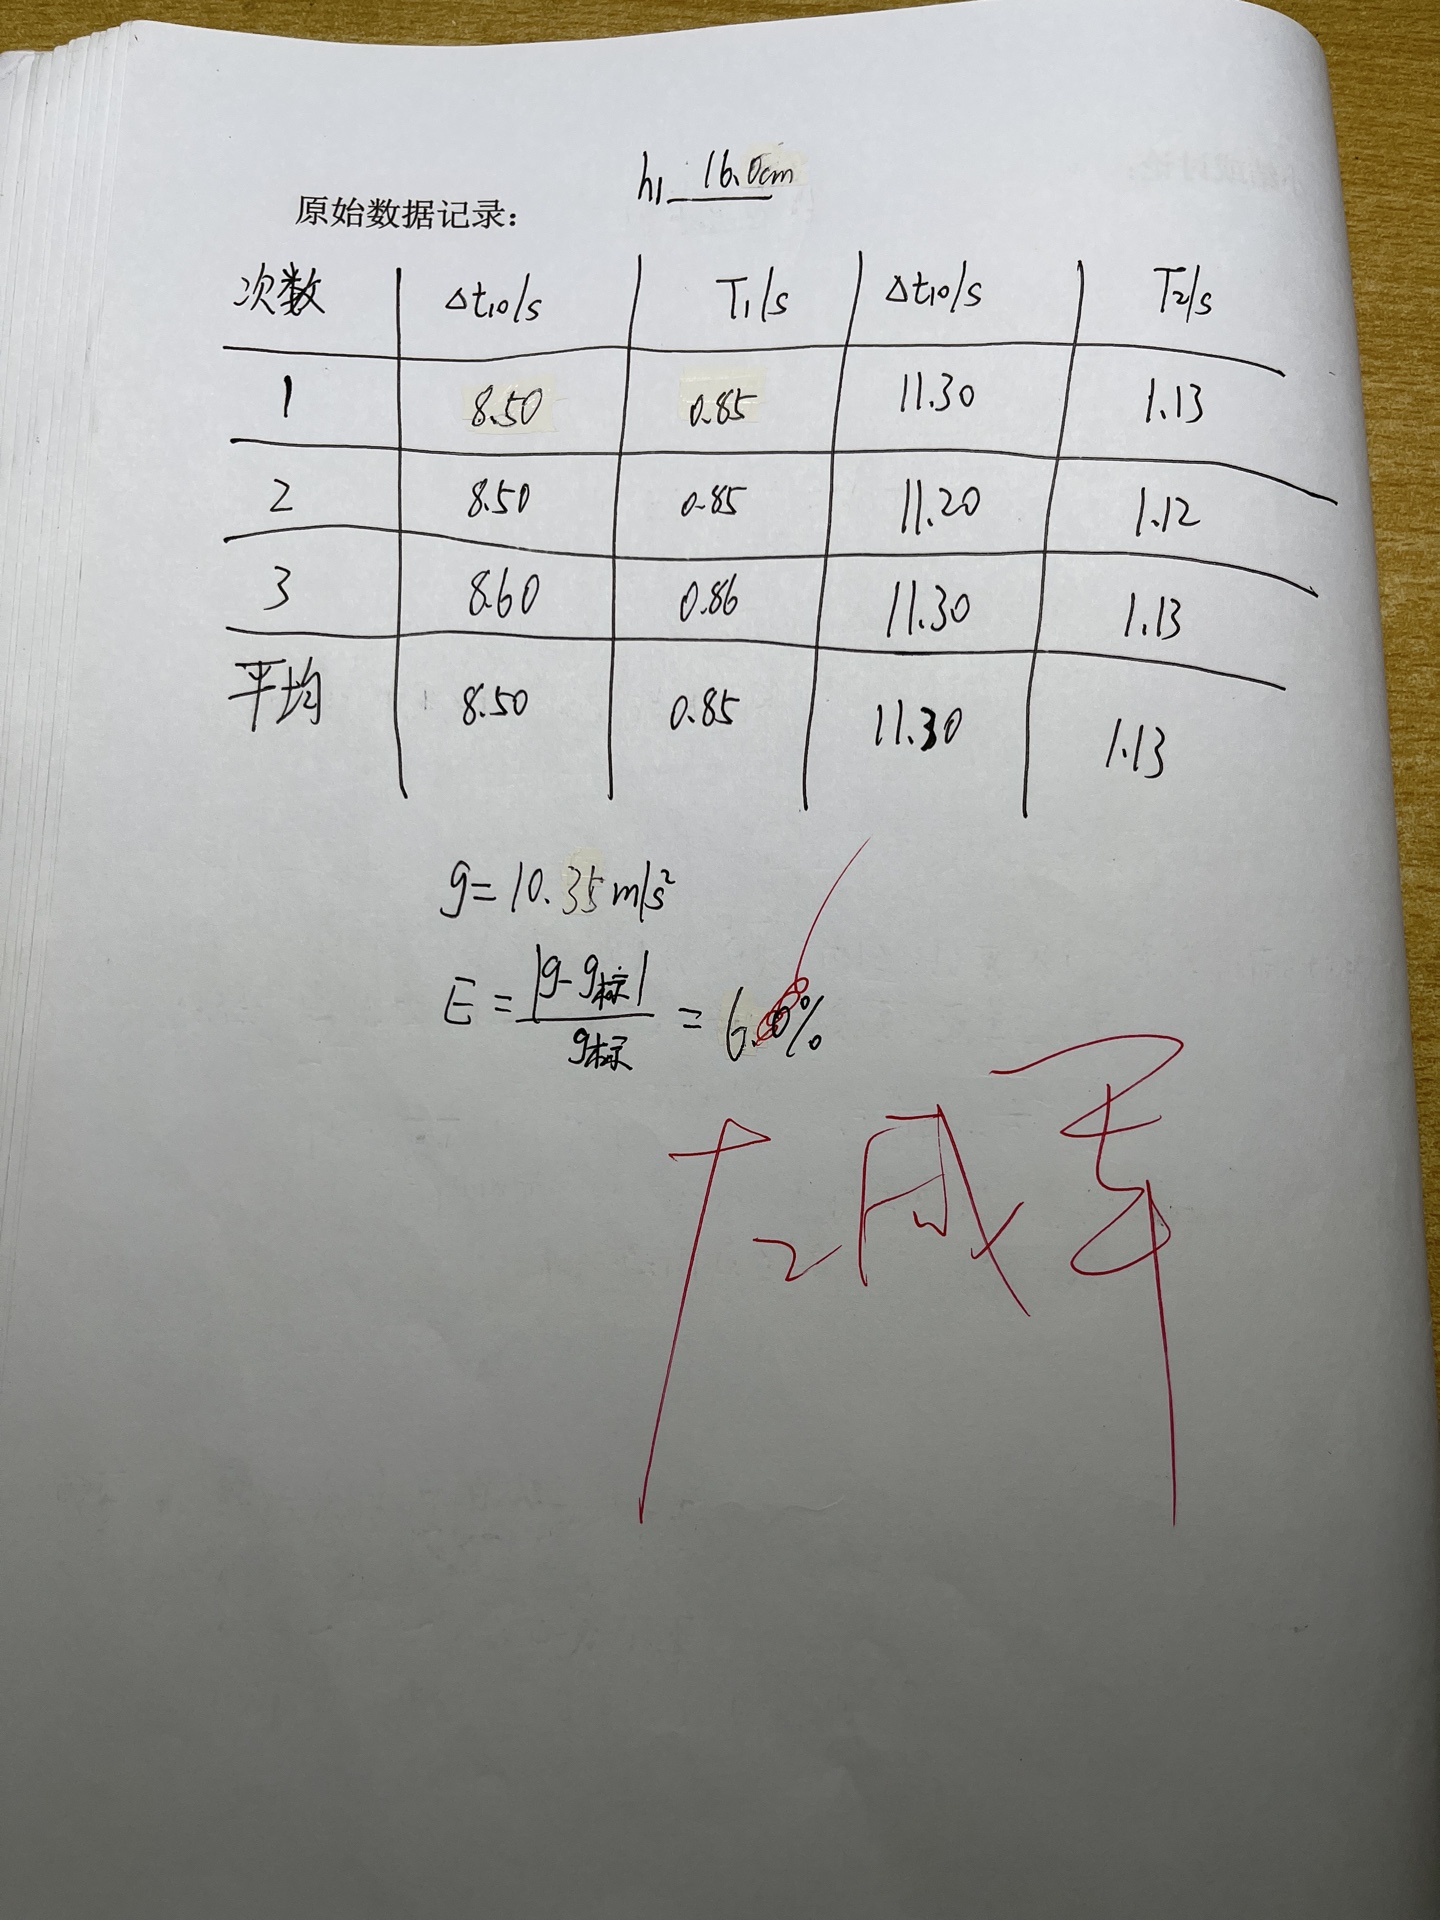 h₁ 16.0cm
原始数据记录：
次数 Δt₁₀/s T₁/s Δt₁₀/s T₂/s
1 8.50 0.85 11.30 1.13
2 8.50 0.85 11.20 1.12
3 8.60 0.86 11.30 1.13
平均 8.50 0.85 11.30 1.13
g=10.35m/s²
E=|g-g标|/g标=6.%